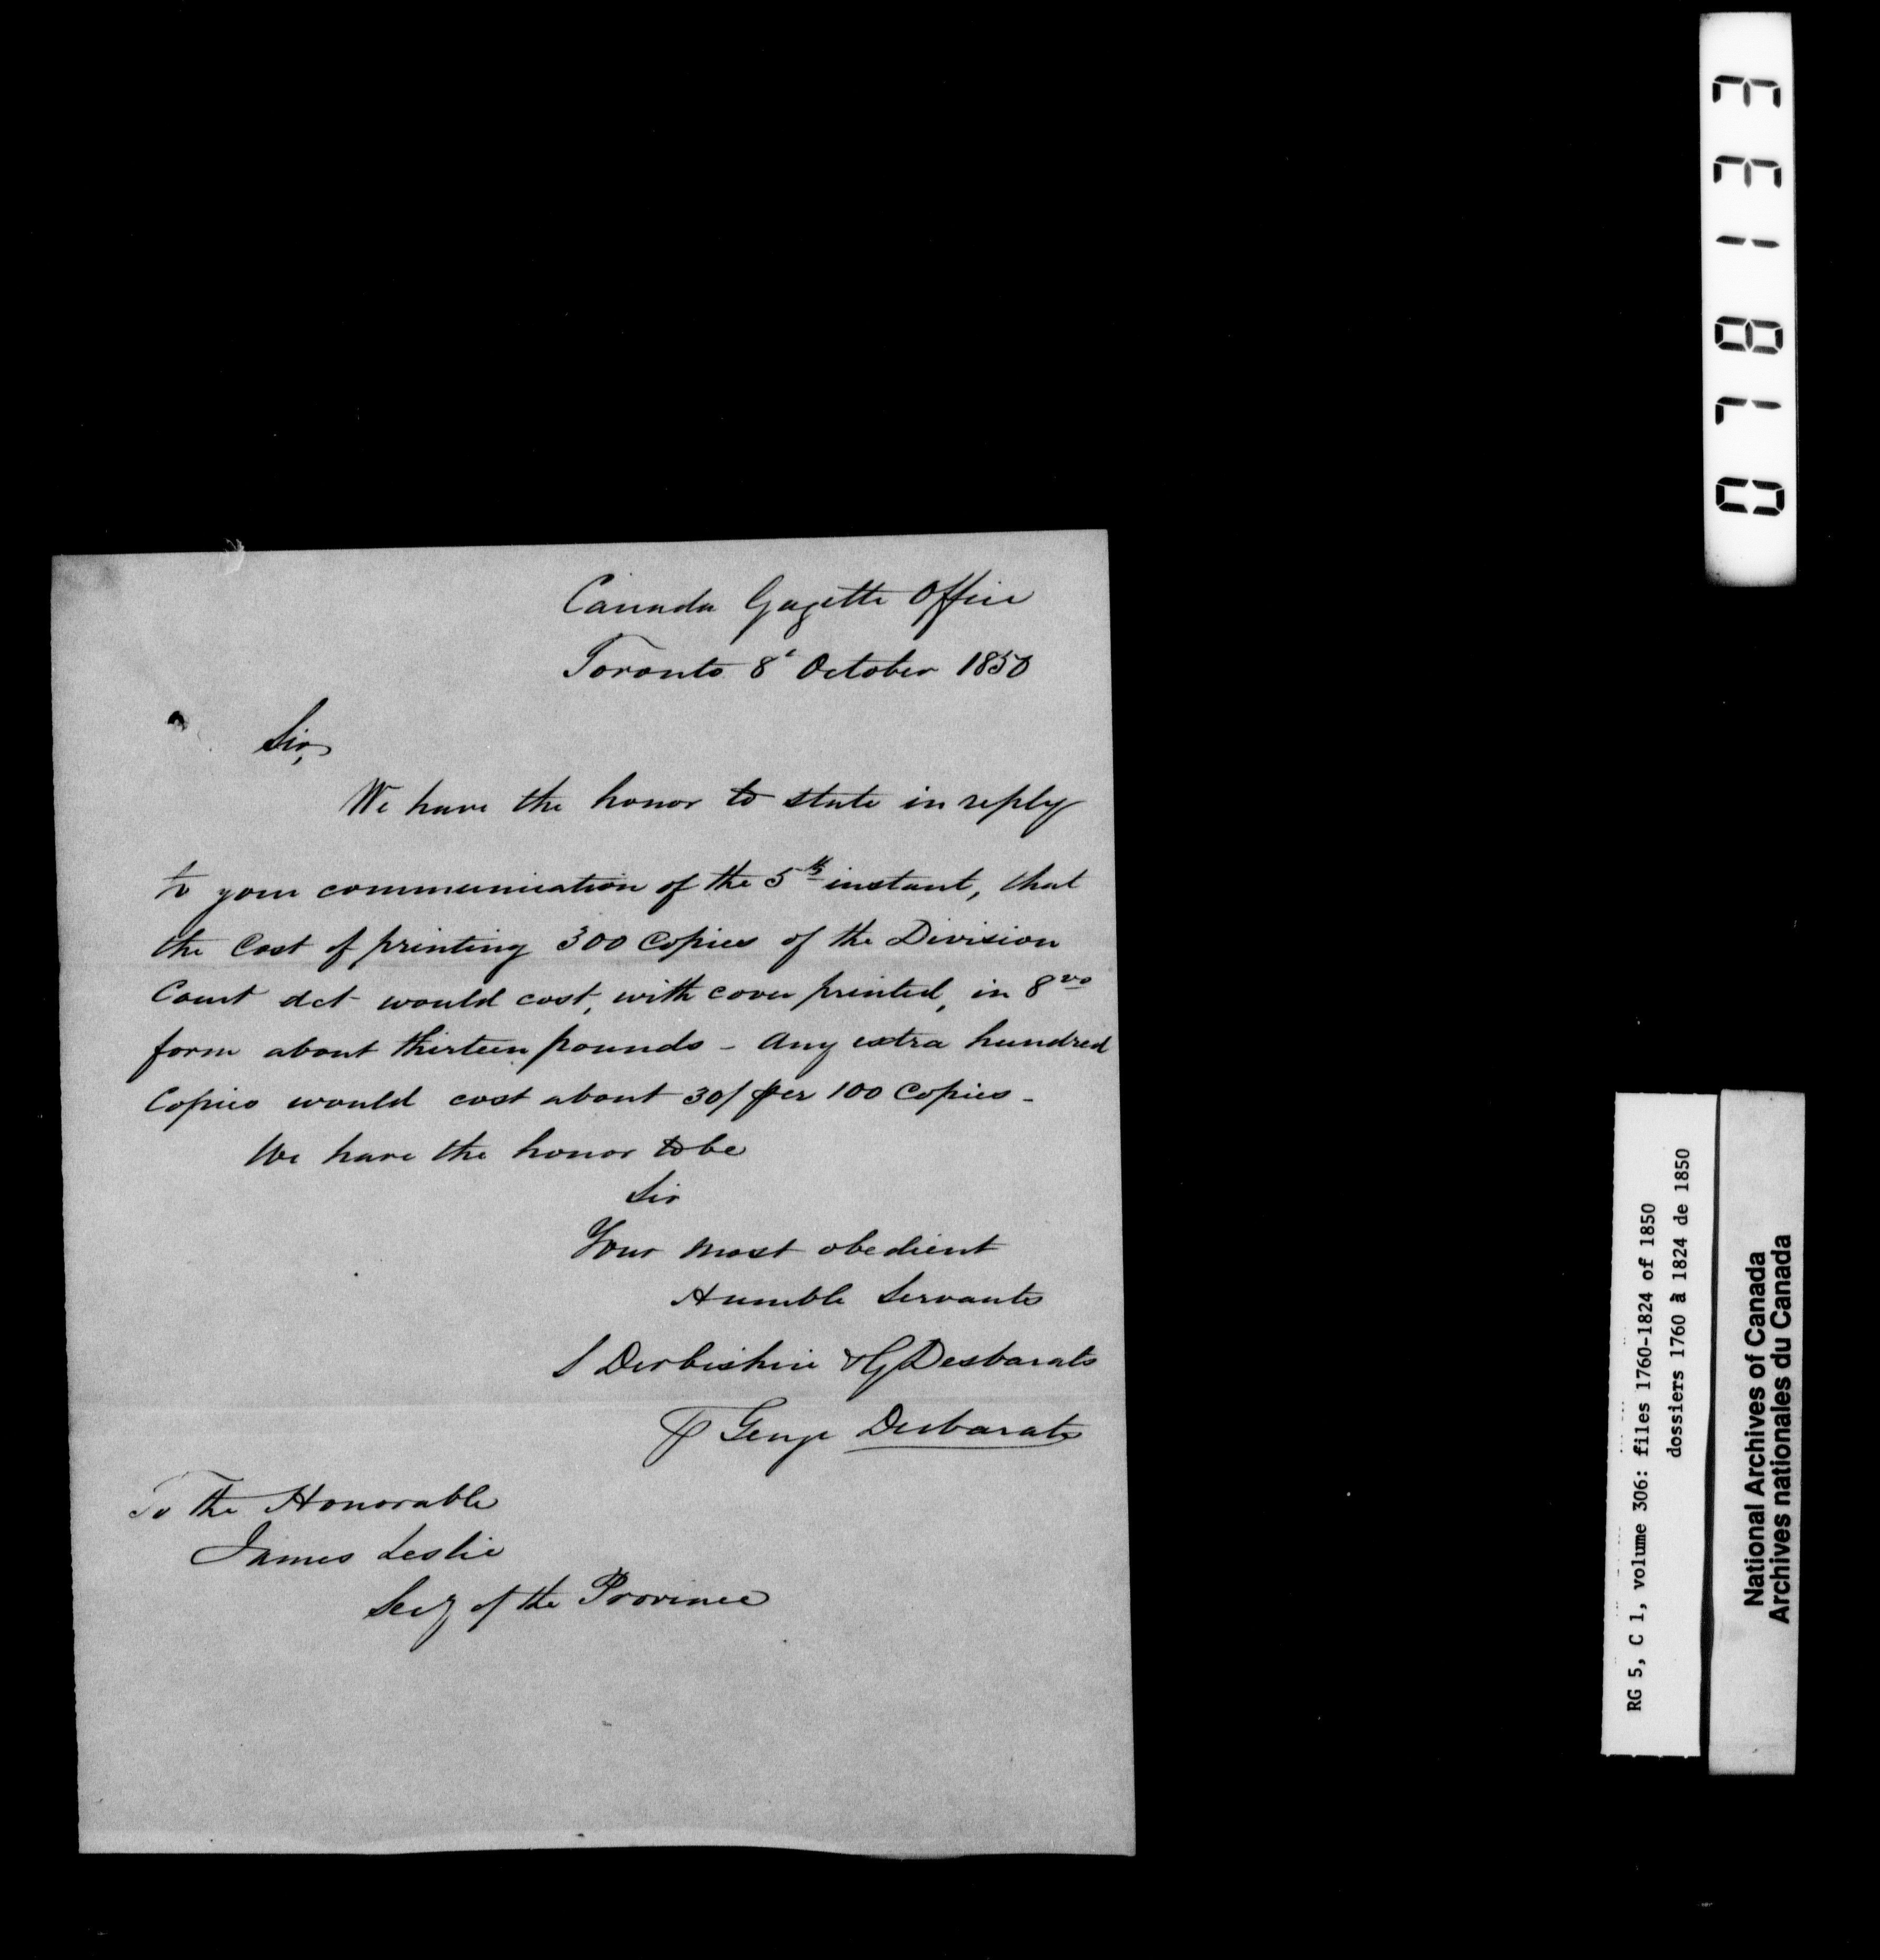 Canada Gazette Office
Toronto 8t October 1850
Sir,
We have the honor to state in reply
to your communication of the 5th instant, that
the Cost of printing 300 Copies of the Division
Court Act would cost, with cover printed, in 8vo
form about thirteen pounds - Any extra hundred
Copies would cost about 30/ per 100 Copies -
We have the honor to be
Sir
Your Most obedient
Humble Servants
S Derbishire & G Desbarats
George Desbarats
To the Honorable
James Leslie
Secy of the Province
078133
RG 5, C 1, volume 306: files 1760-1824 of 1850
dossiers 1760 à 1824 de 1850
National Archives of Canada
Archives nationales du Canada